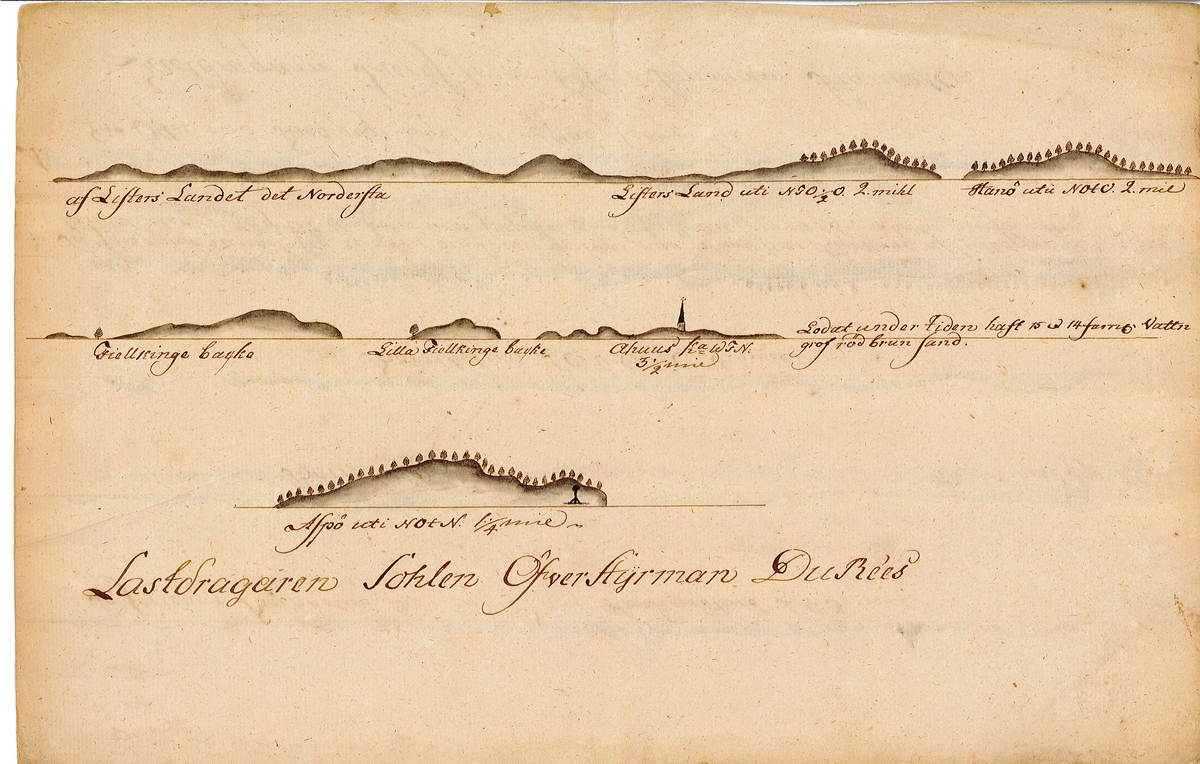 af Listers Landet det Nordersta
Listers Land uti NNO ½ O. 2. mihl
Hanö uti NOtO. 2 mil
Fiellkinge backe
Lilla Fiellkinge backe
Ahuus k:a WtN.
3 ½ mil
Lodat under tiden haft 15 à 14 famns Vattn
grof röd brun sand.
Aspö uti NOtN. ¼ mil
Lastdragaren Sohlen ÖfverStÿrman DuRées